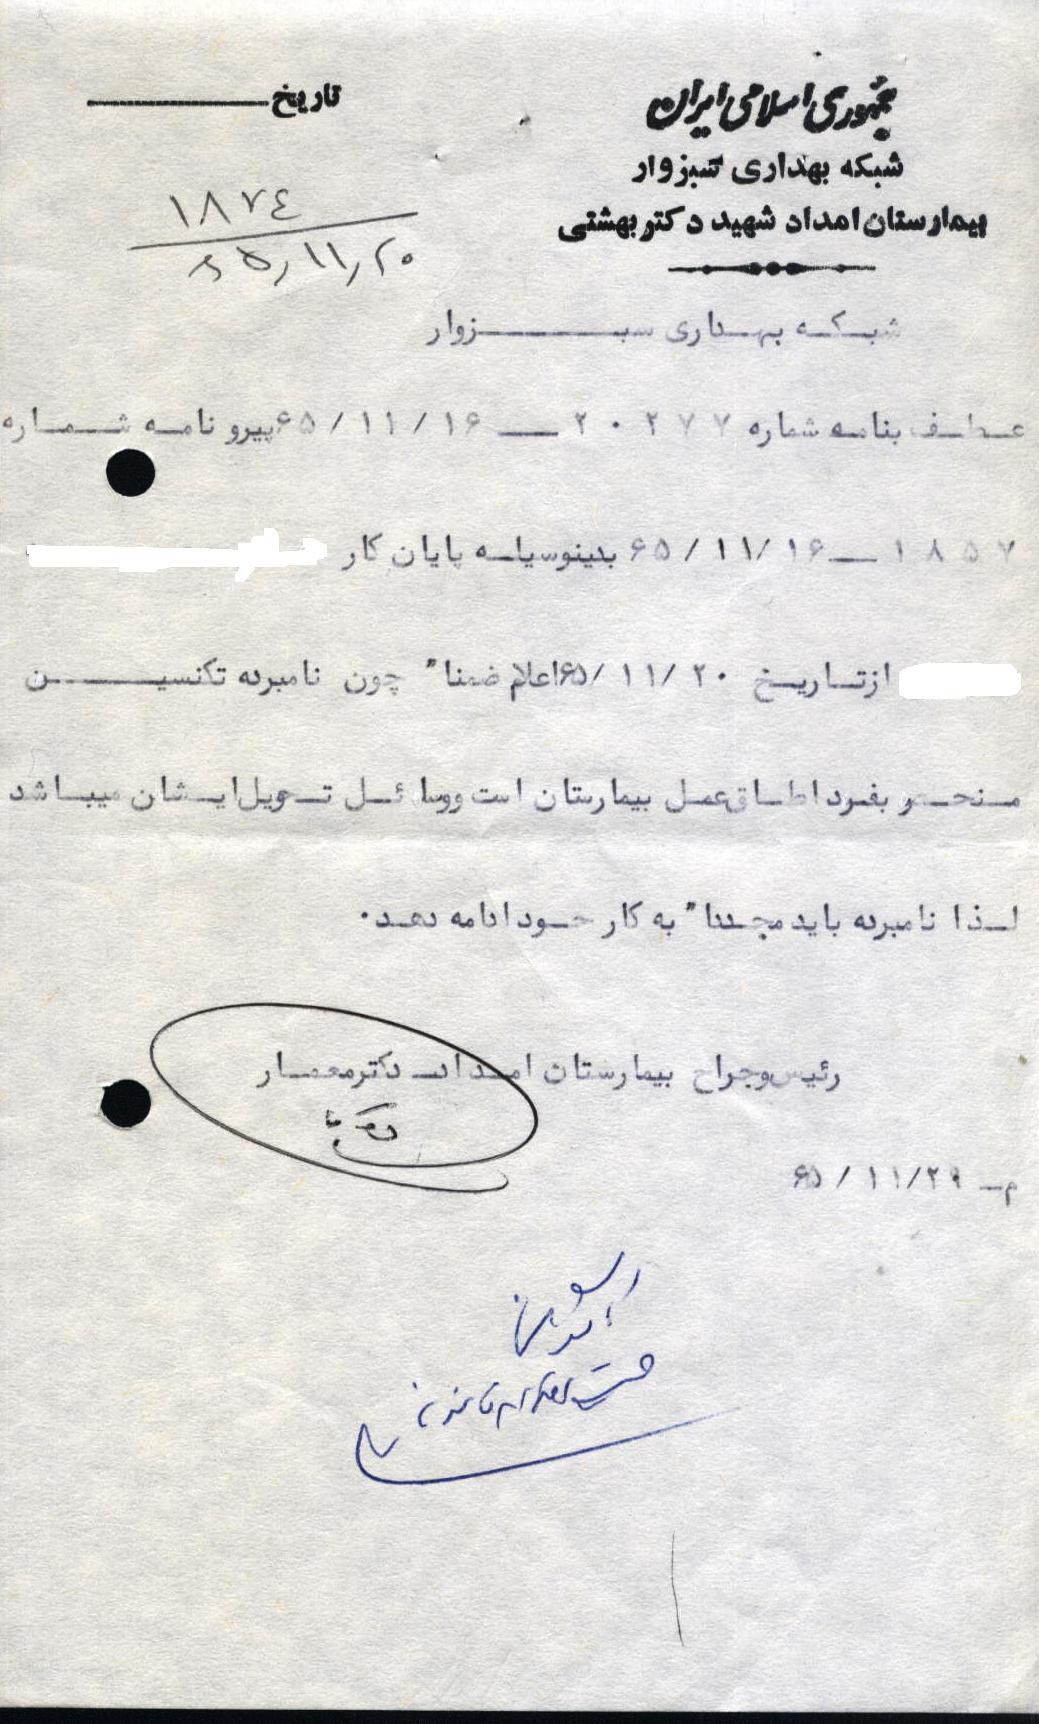 جمهوری اسلامی ایران
شبکه بهداری سبزوار
بیمارستان امداد شهید دکتر بهشتی
تاریخ
۱۸۷٤
۶۵/۱۱/۲۰
شبکه بهداری سبزوار
عطف بنامه شماره ۲۰۲۷۷ ــ ۶۵/۱۱/۱۶ پیرو نامه شماره
۱۸۵۷ ــ ۶۵/۱۱/۱۶ بدینوسیله پایان کار
از تاریخ ۶۵/۱۱/۲۰ اعلام ضمنا" چون نامبرده تکنسین
منحصر بفرد اطاق عمل بیمارستان است و وسائل تحویل ایشان میباشد
لذا نامبرده باید مجددا" به کار خود ادامه دهد.
رئیس و جراح بیمارستان امداد ــ دکتر معمار
م ــ ۶۵/۱۱/۲۹